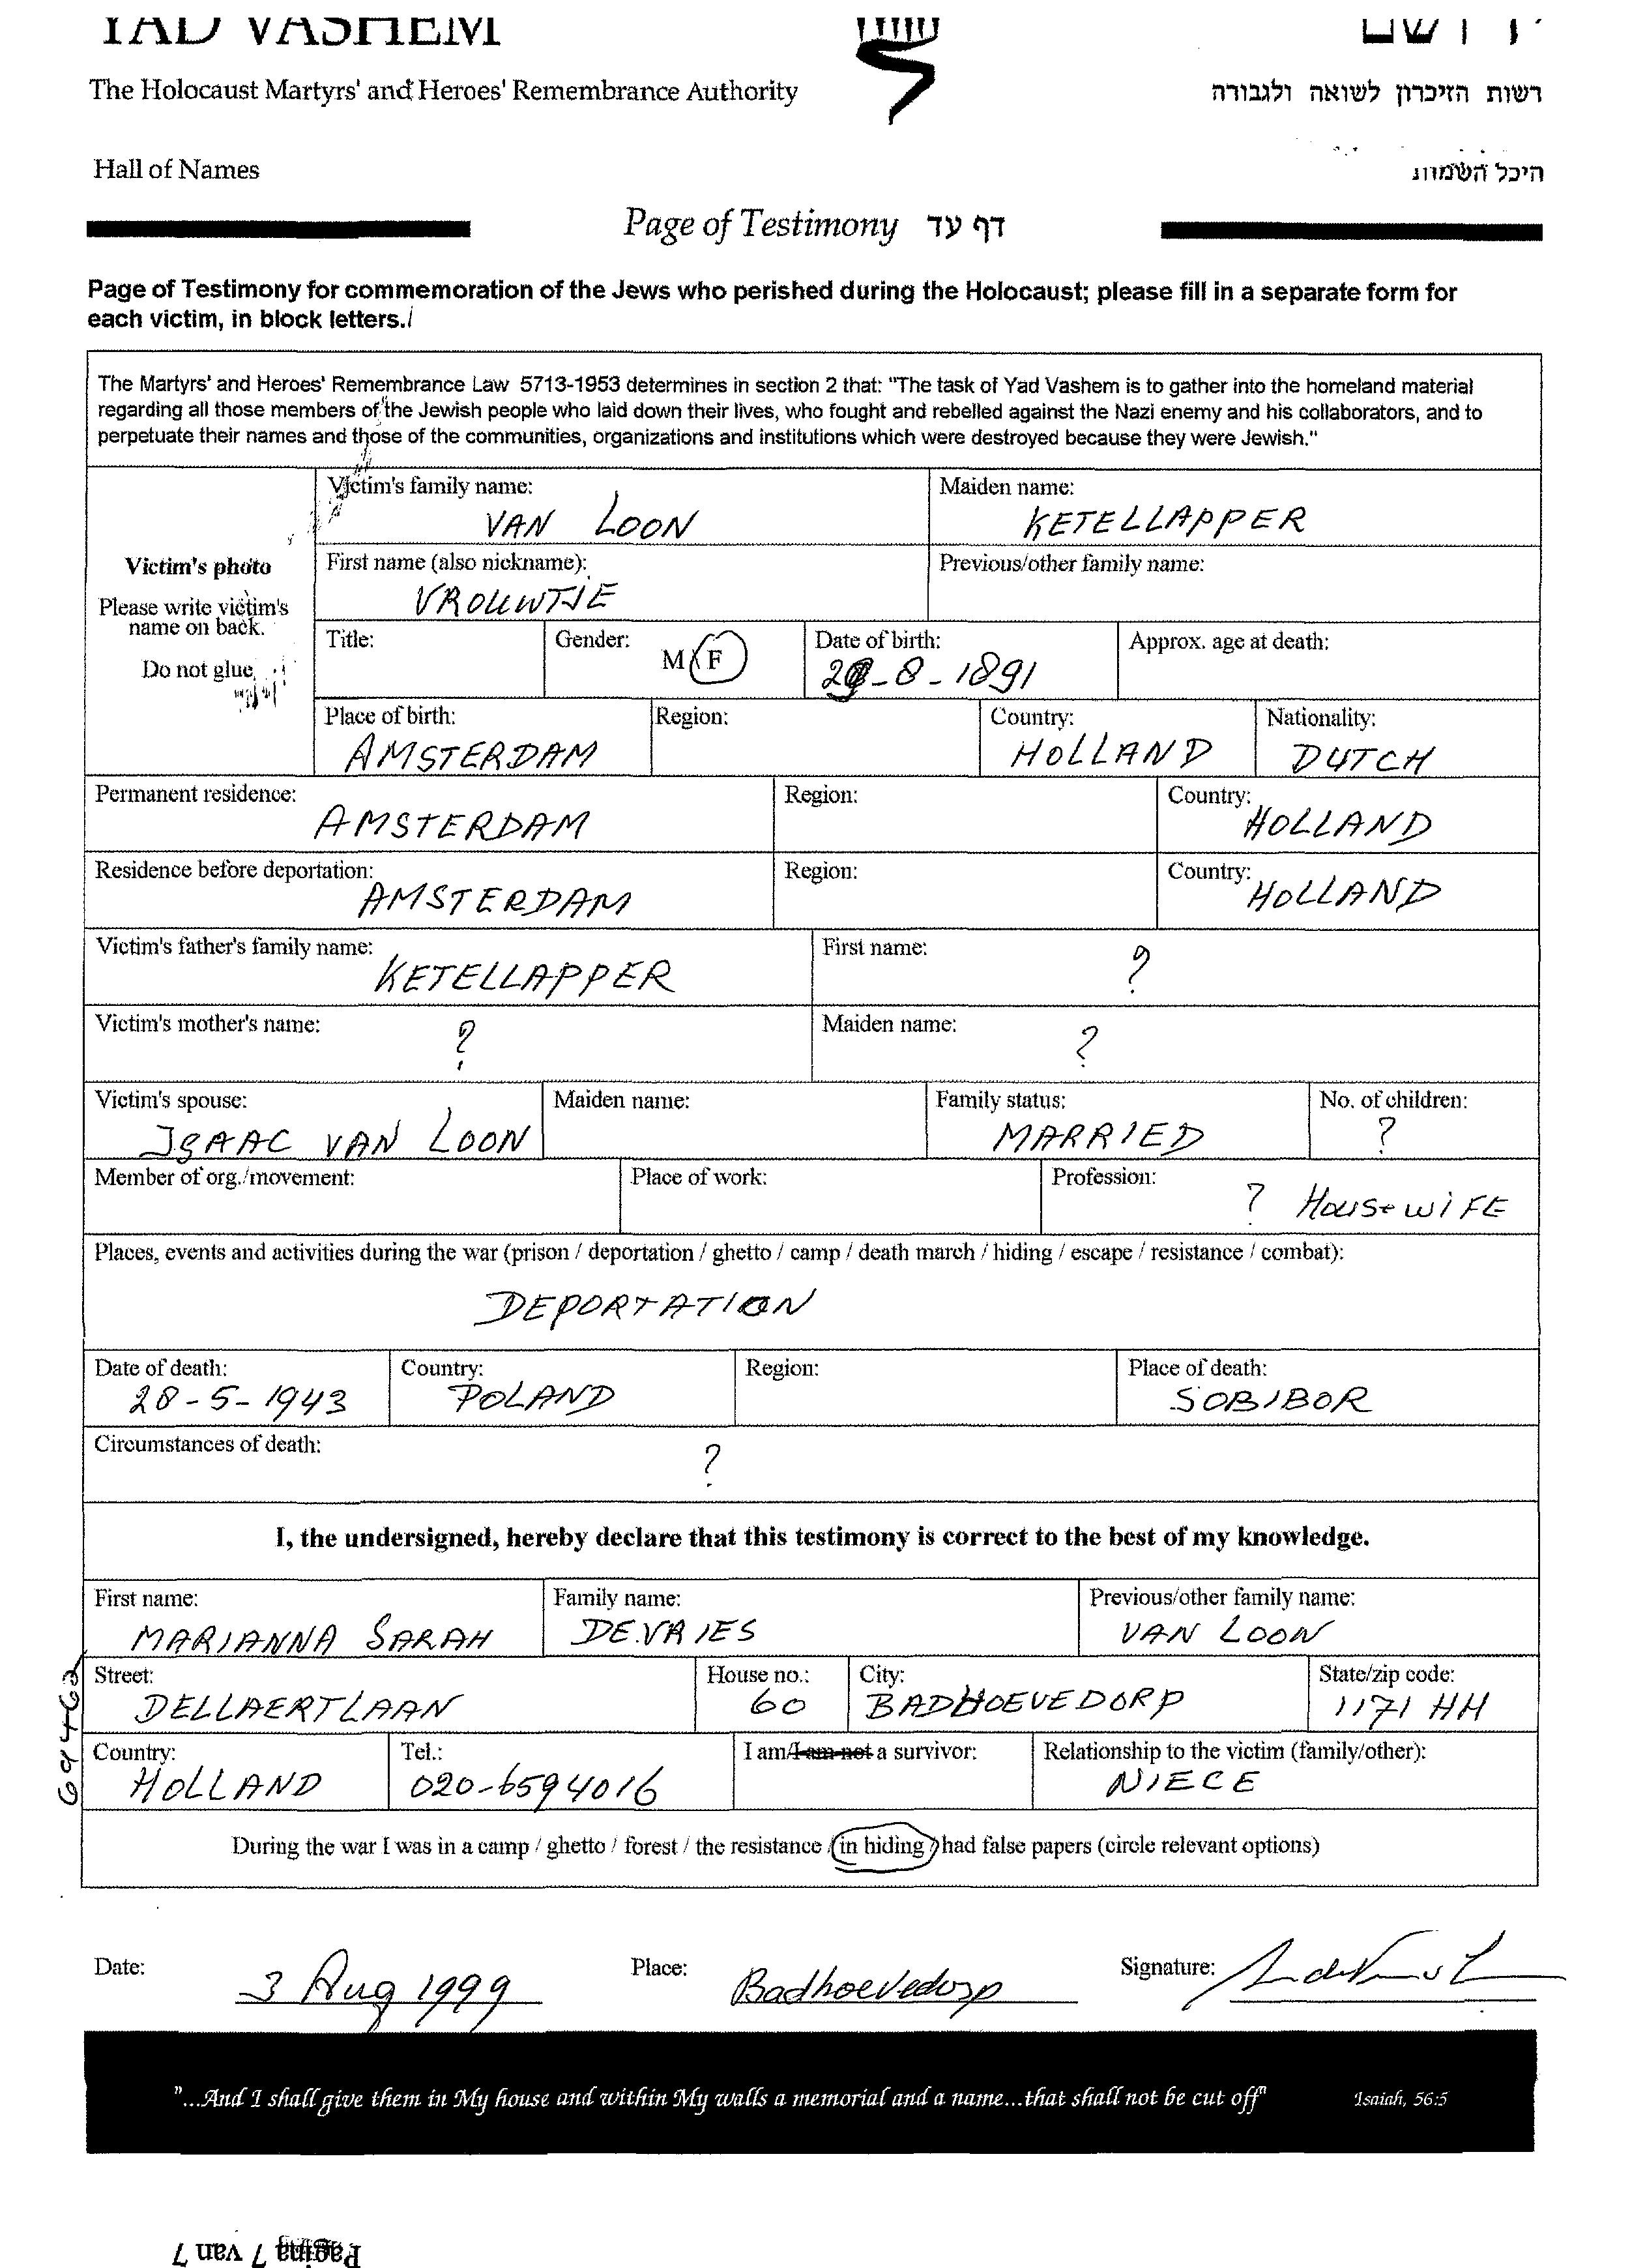 YAD VASHEM יד ושם
The Holocaust Martyrs' and Heroes' Remembrance Authority רשות הזיכרון לשואה ולגבורה
Hall of Names היכל השמות
Page of Testimony דף עד
Page of Testimony for commemoration of the Jews who perished during the Holocaust; please fill in a separate form for
each victim, in block letters.
The Martyrs' and Heroes' Remembrance Law 5713-1953 determines in section 2 that: "The task of Yad Vashem is to gather into the homeland material
regarding all those members of the Jewish people who laid down their lives, who fought and rebelled against the Nazi enemy and his collaborators, and to
perpetuate their names and those of the communities, organizations and institutions which were destroyed because they were Jewish."
Victim's photo
Please write victim's
name on back.
Do not glue
Victim's family name: Maiden name:
VAN LOON KETELLAPPER
First name (also nickname): Previous/other family name:
VROUWTJE
Title: Gender: M/F Date of birth: Approx. age at death:
-8-1891
Place of birth: Region: Country: Nationality:
AMSTERDAM HOLLAND DUTCH
Permanent residence: Region: Country:
AMSTERDAM HOLLAND
Residence before deportation: Region: Country:
AMSTERDAM HOLLAND
Victim's father's family name: First name:
KETELLAPPER ?
Victim's mother's name: Maiden name:
? ?
Victim's spouse: Maiden name: Family status: No. of children:
ISAAC VAN LOON MARRIED ?
Member of org./movement: Place of work: Profession:
? HOUSEWIFE
Places, events and activities during the war (prison / deportation / ghetto / camp / death march / hiding / escape / resistance / combat):
DEPORTATION
Date of death: Country: Region: Place of death:
28-5-1943 POLAND SOBIBOR
Circumstances of death:
?
I, the undersigned, hereby declare that this testimony is correct to the best of my knowledge.
First name: Family name: Previous/other family name:
MARIANNA SARAH DE VRIES VAN LOON
Street: House no.: City: State/zip code:
DELLAERTLAAN 60 BADHOEVEDORP 1171 HH
Country: Tel.: I am/I am not a survivor: Relationship to the victim (family/other):
HOLLAND 020-6594016 NIECE
During the war I was in a camp / ghetto / forest / the resistance / in hiding / had false papers (circle relevant options)
Date: 3 Aug 1999 Place: Badhoevedorp Signature:
"...And I shall give them in My house and within My walls a memorial and a name...that shall not be cut off" Isaiah, 56:5
Pagina 7 van 7